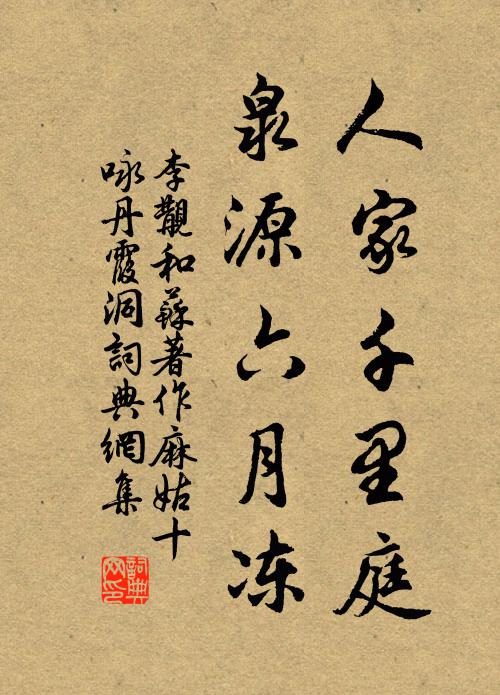 人家千里庭
泉源六月冻
李觀和蘇著作麻姑十
咏丹霞洞詞典網集
詞典
网印